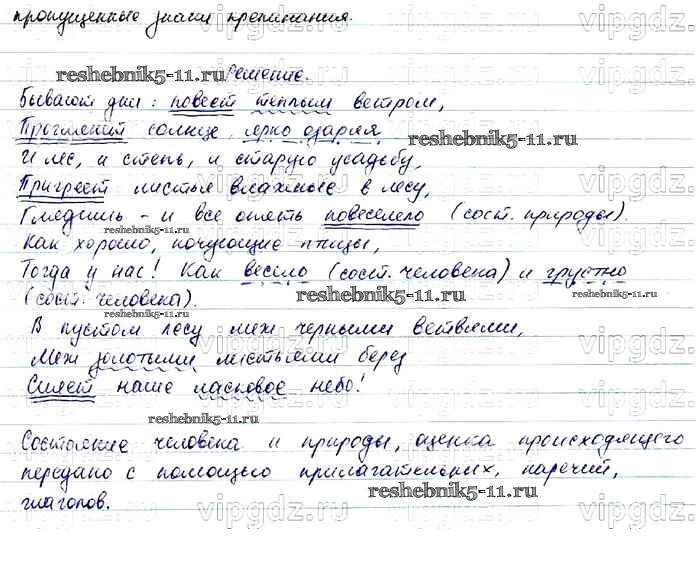 пропущенные знаки препинания.
reshebnik5-11.ru Решение.
Бывают дни: повеет теплым ветром,
Проглянет солнце, ярко озаряя
reshebnik5-11.ru
И лес, и степь, и старую усадьбу,
Пригреет листья влажные в лесу,
Глядишь - и все опять повеселело (сост. природы)
Как хорошо, кочующие птицы,
Тогда у нас! Как весело (сост. человека) и грустно
(сост. человека).
reshebnik5-11.ru
reshebnik5-11.ru
В пустом лесу меж черными ветвями,
Меж золотыми листьями берез
Сияет наше ласковое небо!
reshebnik5-11.ru
Состояние человека и природы, оценка происходящего
передано с помощью прилагательных, наречий,
глаголов.
reshebnik5-11.ru
vipgdz.ru